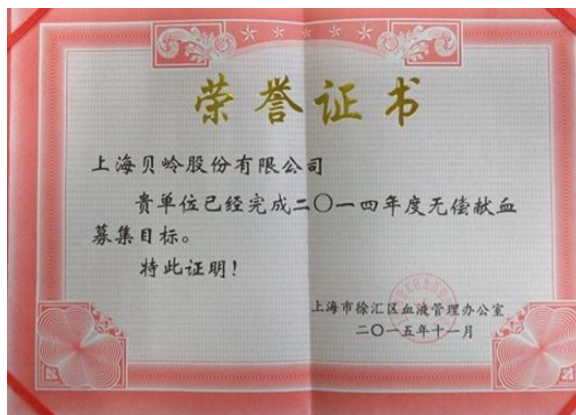 荣誉证书
上海贝岭股份有限公司
贵单位已经完成二〇一四年度无偿献血
募集目标。
特此证明！
上海市徐汇区血液管理办公室
二〇一五年十一月